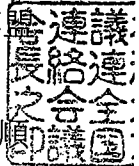 議連全国
連絡会議
長之印
順